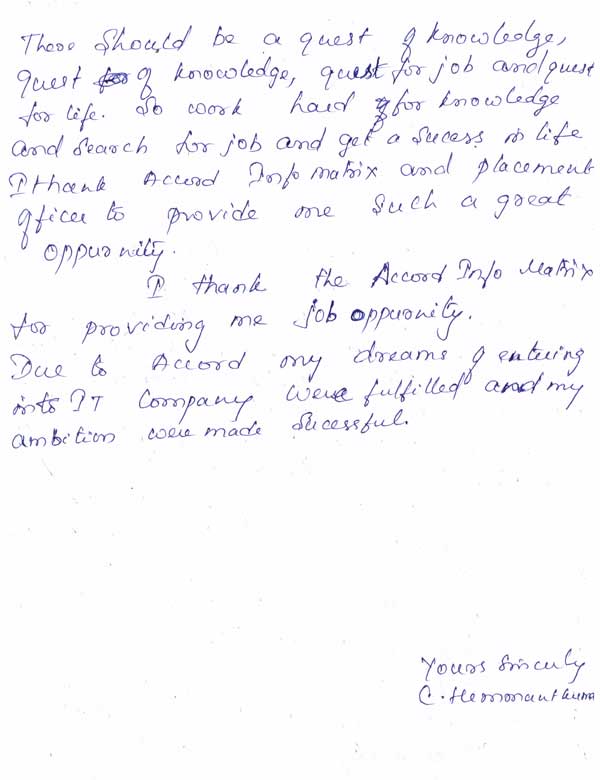 There should be a quest of knowledge,
quest of knowledge, quest for job and quest
for life. So work hard for knowledge
and search for job and get a sucess in life
I thank Accord Info matrix and placement
officer to provide me such a great
oppurnity.
I thank the Accord Info Matrix
for providing me job oppurnity.
Due to Accord my dreams of entering
into IT Company were fulfilled and my
ambition were made sucessful.
Yours Sincerly
C. Hemmanthkuma